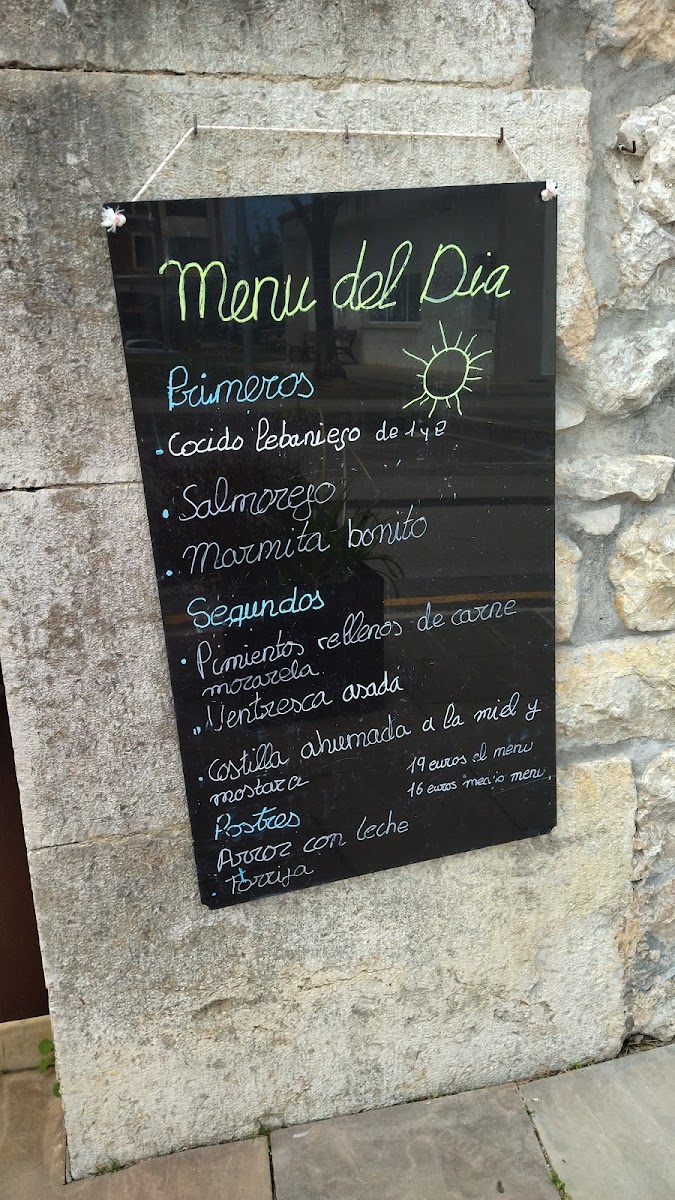 Menu del Dia
Primeros
Cocido lebaniego de 1 y 2
Salmorejo
Marmita bonito
Segundos
Pimientos rellenos de carne
morarela
Ventresca asada
Costilla ahumada a la miel y
mostaza
19 euros el menu
16 euros medio menu
Postres
Arroz con leche
Torrija